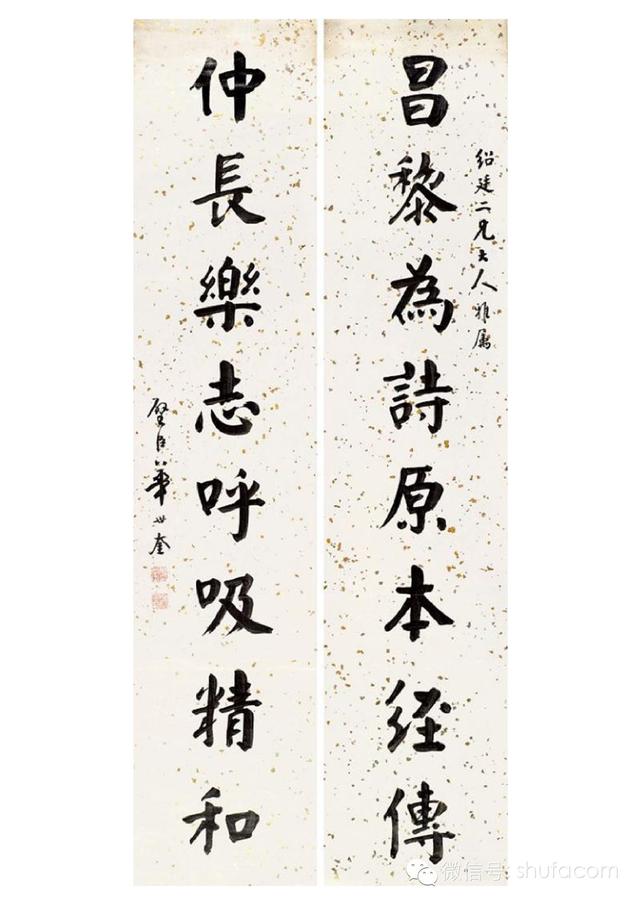 紹廷二兄大人雅属
昌黎為詩原本經傳
仲長樂志呼吸精和
璧臣華世奎
微信号: shufacom